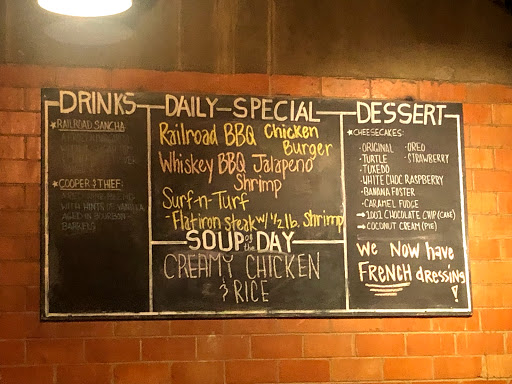 DRINKS
★RAILROAD SANCHA
★COOPER $ THIEF:
WITH HINTS OF VANILLA
AGED IN BOURBON
BARRELS
DAILY SPECIAL
Railroad BBQ Chicken
Burger
Whiskey BBQ Jalapeno
Shrimp
Surf-n-Turf
-Flatiron steak w/ 1/2 lb. shrimp
SOUP of the DAY
CREAMY CHICKEN
& RICE
DESSERT
★CHEESECAKES:
• ORIGINAL • OREO
• TURTLE • STRAWBERRY
• TUXEDO
• WHITE CHOC RASPBERRY
• BANANA FOSTER
• CARAMEL FUDGE
→ 1001 CHOCOLATE CHIP (CAKE)
→ COCONUT CREAM (PIE)
We Now have
FRENCH dressing
!